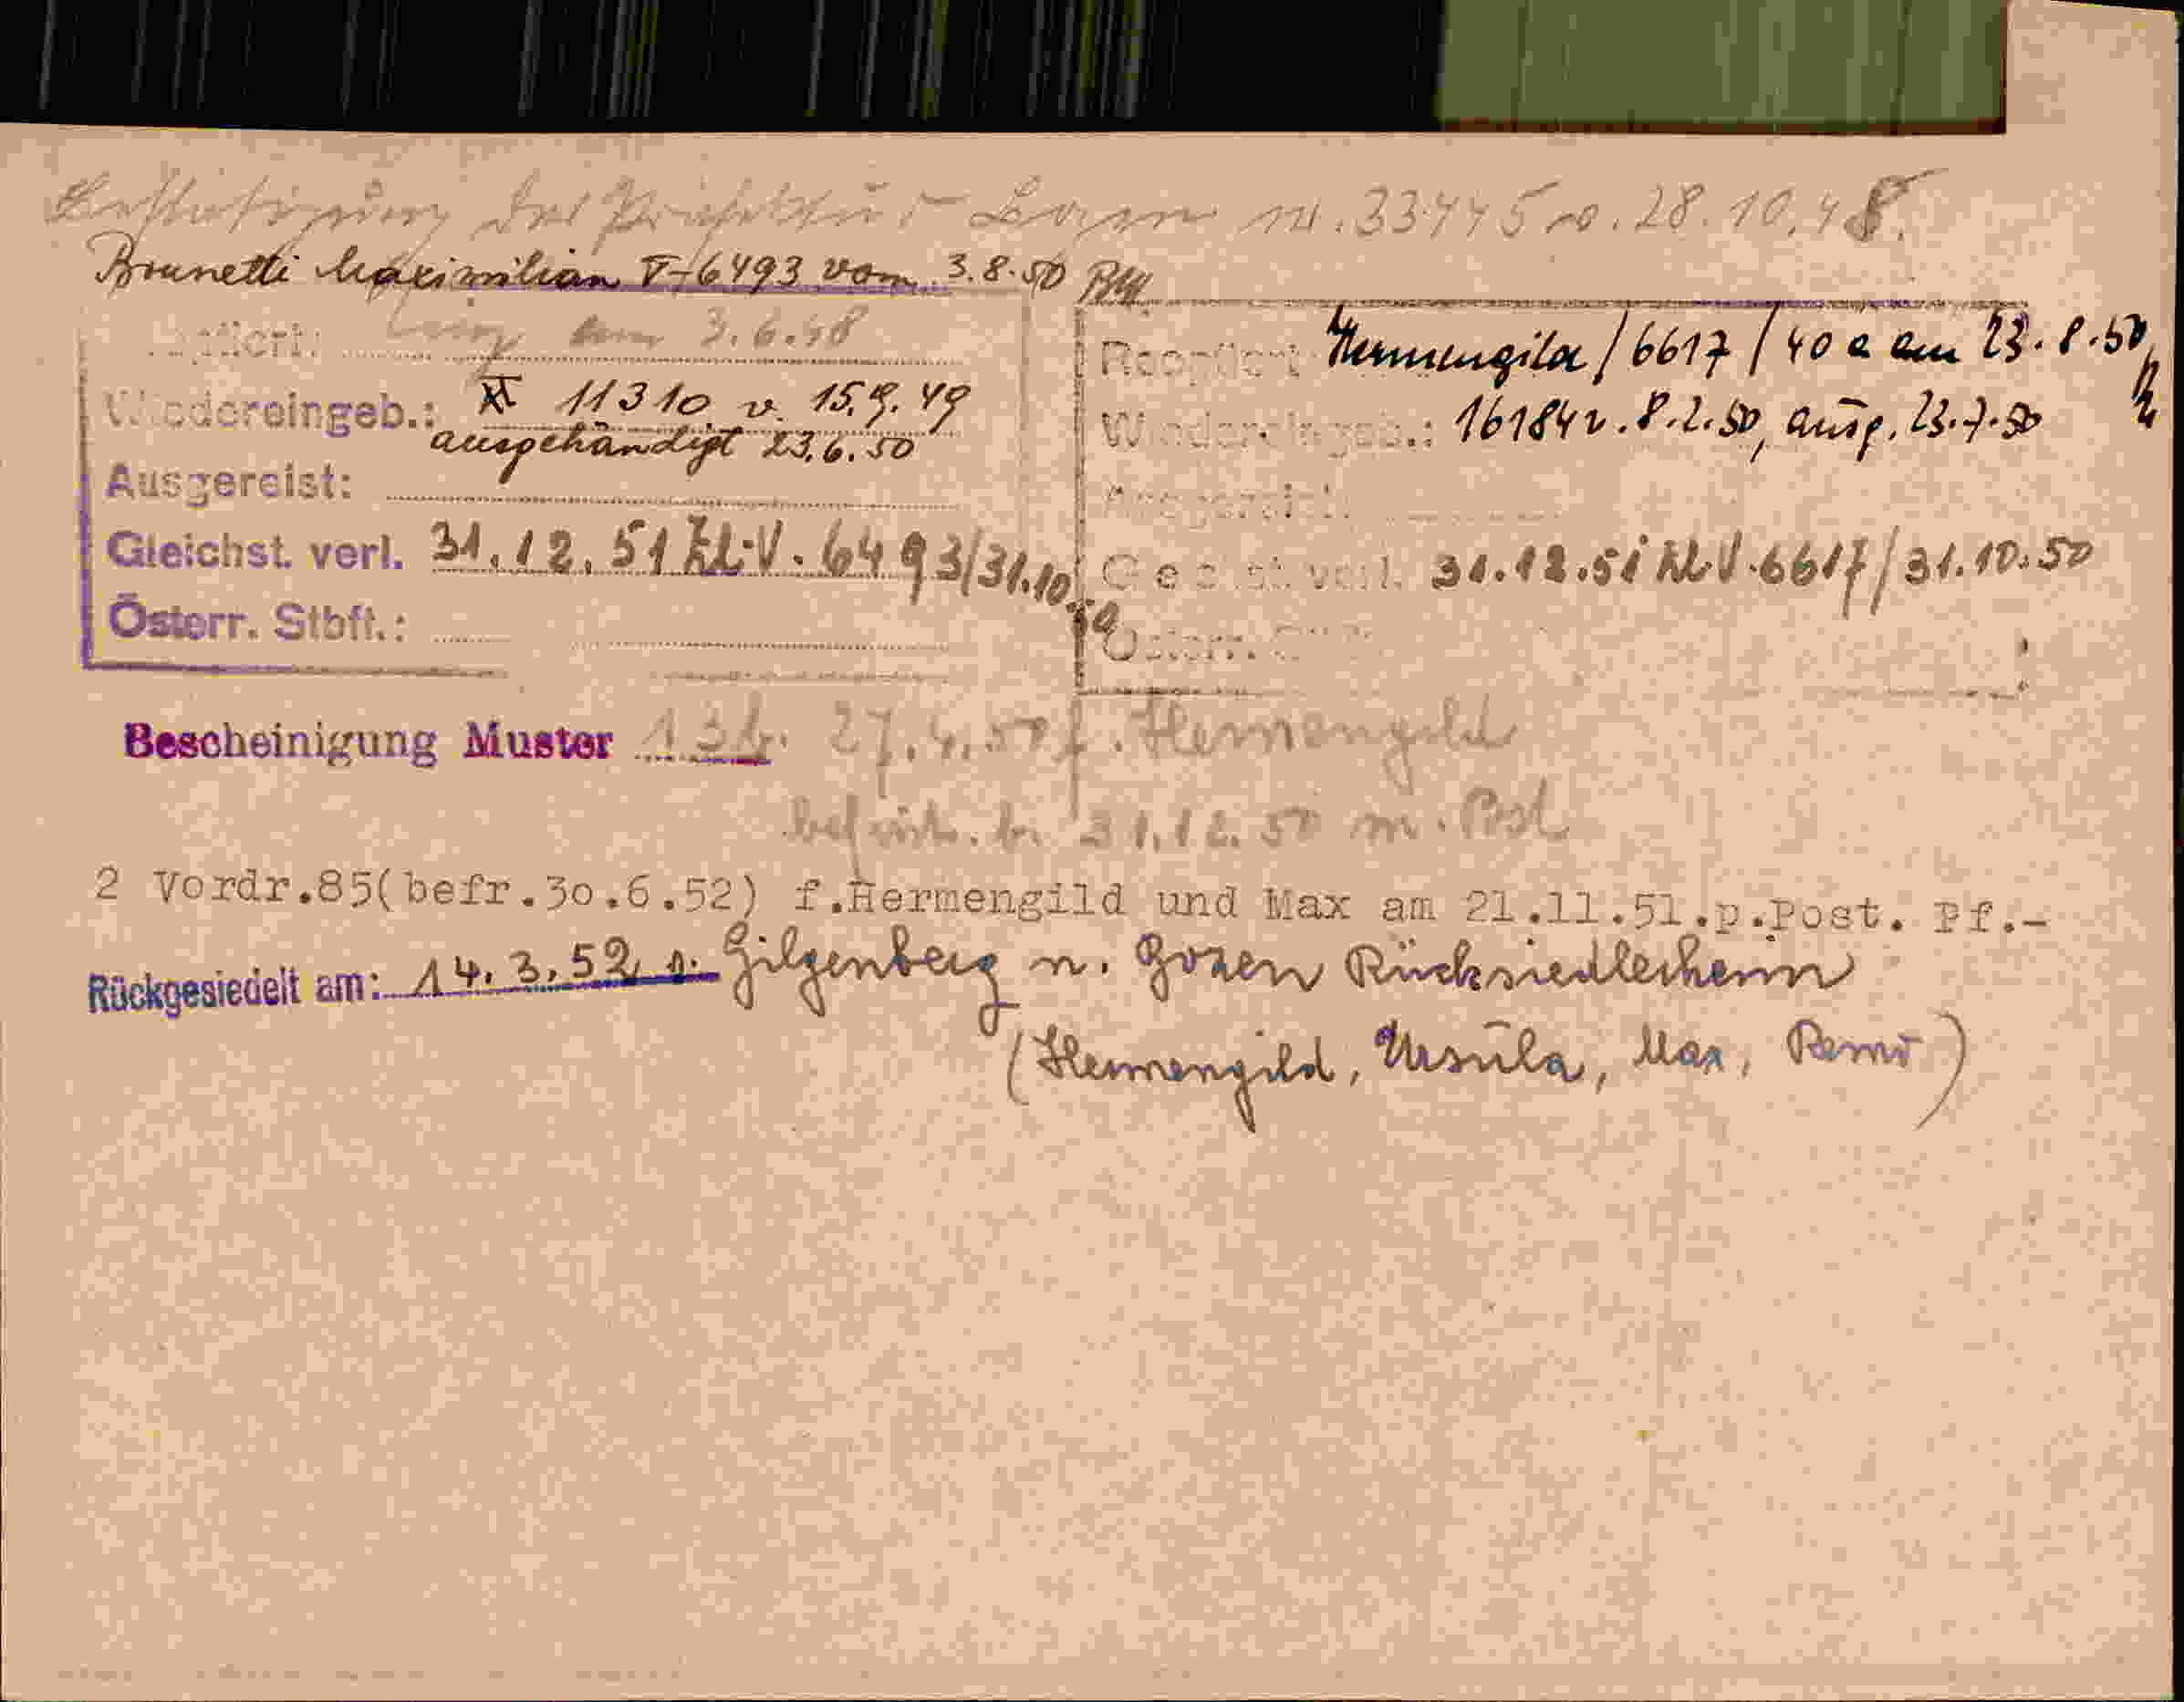 Bestätigung der Präfektur Bozen nr. 33445 v. 28.10.48.
Brunetti Maximilian V-6493 vom 3.8.50
am 3.6.48
Wiedereingeb.: XI 11310 v. 15.9.49
ausgehändigt 23.6.50
Ausgereist:
Gleichst. verl. 31.12.51 Zl.V. 6493/31.10.50
Österr. Stbft.:
Reoptiert Hermengild / 6617 / 40 a am 23.8.50
Wiedereingeb.: 16184 v. 8.2.50, ausg. 23.7.50
Ausgereist:
Gleichst. verl. 31.12.51 Zl.V. 6617/31.10.50
Österr.
Bescheinigung Muster 13b. 27.4.50 f. Hermengild
befrist. b. 31.12.50 m. Post
2 Vordr.85(befr.30.6.52) f.Hermengild und Max am 21.11.51.p.Post. Pf.-
Rückgesiedelt am: 14.3.52 v. Gilgenberg n. Bozen Rücksiedlerheim
(Hermengild, Ursula, Max, Remo)